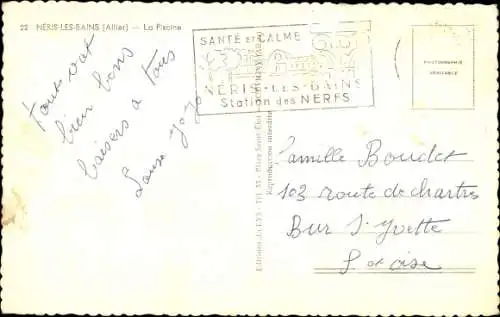 22 NÉRIS-LES-BAINS (Allier) - La Piscine
SANTÉ et CALME
NÉRIS-LES-BAINS
Station des NERFS
PHOTOGRAPHIE
VÉRITABLE
tout va
bien bons
baisers a tous
Reproduction interdite
famille Boudet
103 route de chartres
Bur S. Yvette
S et oise